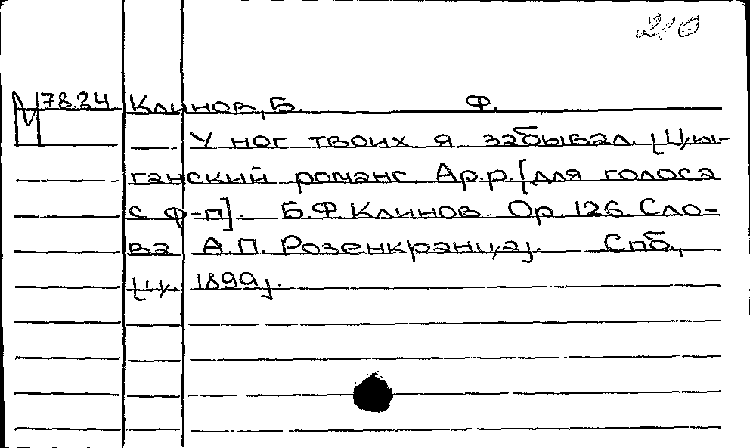 210
М 78.24 Клинов, Б. Ф.
У ног твоих я забывал. [Цы-
ганский романс. Ар.р. [для голоса
с ф-п]. Б.Ф. Клинов. Op. 126. Сло-
ва А.П. Розенкранца]. Спб.,
[ц. 1899].